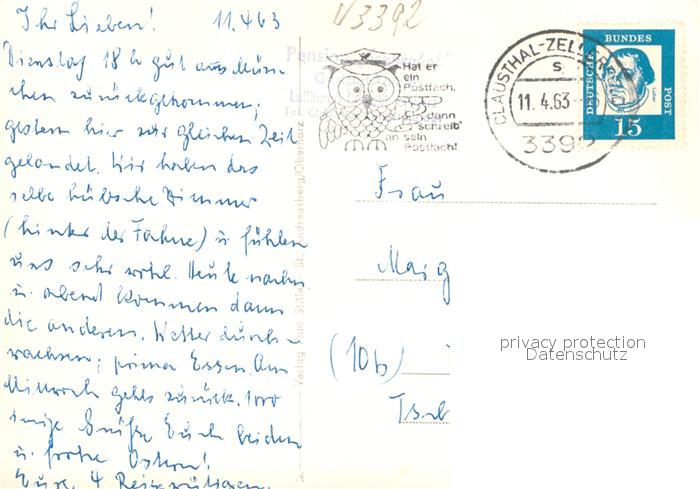 Ihr Lieben! 11.4.63
Dienstag 18 h gut aus Mün-
chen zurückgekommen,
gestern hier zur gleichen Zeit
gelandet. Wir haben das
selbe hübsche Zimmer
(hinter der Fahne) u fühlen
uns sehr wohl. Heute nachm
u. abend kommen dann
die anderen. Wetter durch-
wachsen, prima Essen. Am
Mittwoch gehts zurück. 1000
innige Grüße Euch beiden
u. frohe Ostern!
Eure 4
V3392
Hat er
ein
Postfach,
dann
'Schreib'
an sein
Postfach!
CLAUSTHAL-ZELLERF
S
11.4.63
3392
DEUTSCHE BUNDES POST
Luther
15
St. Andreasberg/Oberharz
Verlag
Frau
Maig
(10b)
privacy protection
Datenschutz